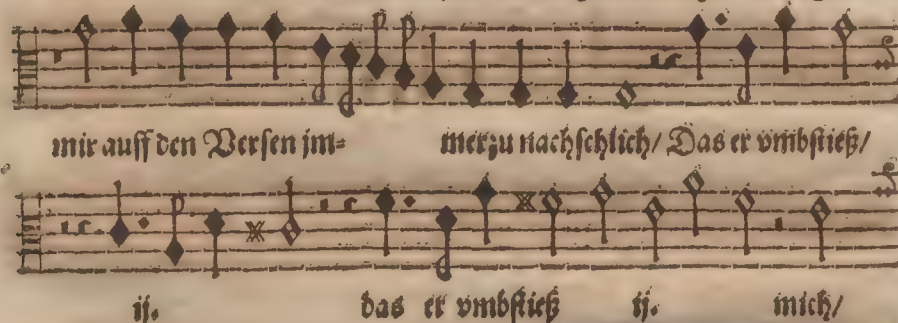 mir auff den Versen im= merzu nachschlich/ Das er vmbstieß/
ij. das er vmbstieß ij. mich/